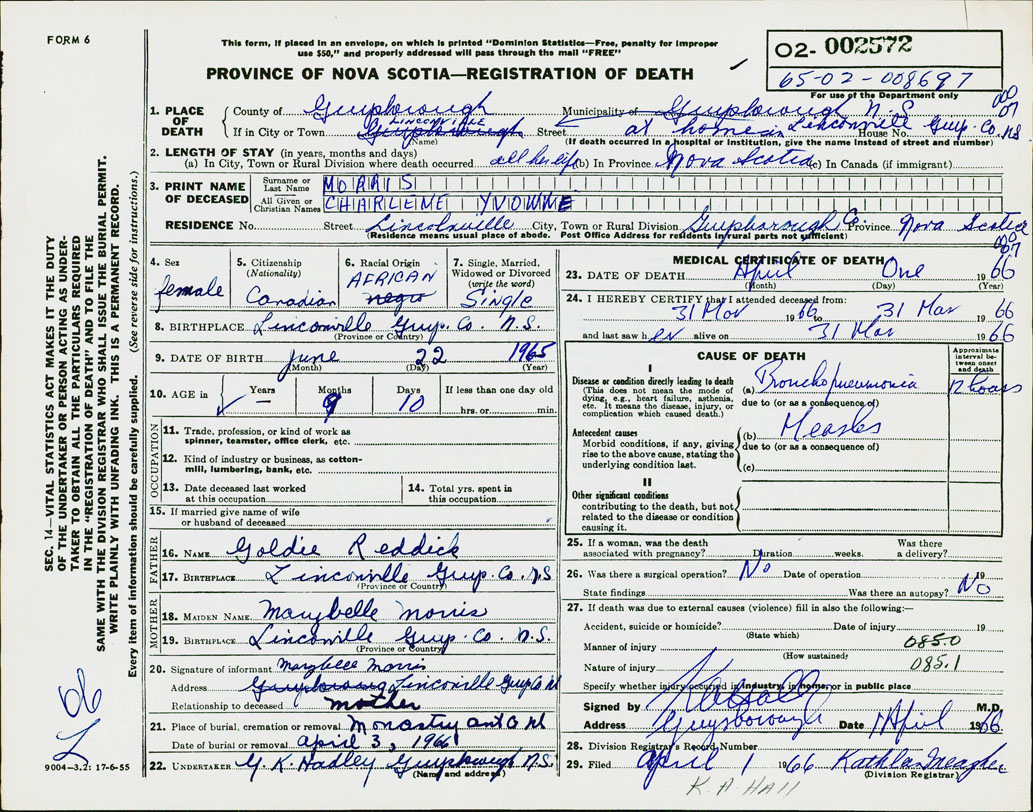 FORM 6
This form, if placed in an envelope, on which is printed "Dominion Statistics—Free, penalty for improper
use $50," and properly addressed will pass through the mail "FREE"
PROVINCE OF NOVA SCOTIA—REGISTRATION OF DEATH
O2- 002572
65-02-008697
For use of the Department only
1. PLACE OF DEATH
County of Guysborough Municipality of Guysborough N.S. 000 07
If in City or Town LINCONVILLE Guysborough Street at home in Linconville Guy. Co. N.S. House No.
(Name) (If death occurred in a hospital or institution, give the name instead of street and number)
2. LENGTH OF STAY (in years, months and days)
(a) In City, Town or Rural Division where death occurred all her life (b) In Province Nova Scotia (c) In Canada (if immigrant)
3. PRINT NAME OF DECEASED
Surname or Last Name MORRIS
All Given or Christian Names CHARLENE YVONNE
RESIDENCE No. Street Lincolnville City, Town or Rural Division Guysborough Co. Province Nova Scotia
(Residence means usual place of abode. Post Office Address for residents in rural parts not sufficient)
000 07
4. Sex female
5. Citizenship (Nationality) Canadian
6. Racial Origin AFRICAN negro
7. Single, Married, Widowed or Divorced (write the word) Single
8. BIRTHPLACE Linconville Guy. Co. N.S.
(Province or Country)
9. DATE OF BIRTH June 22 1965
(Month) (Day) (Year)
10. AGE in Years — Months 9 Days 10 If less than one day old hrs. or min.
OCCUPATION
11. Trade, profession, or kind of work as spinner, teamster, office clerk, etc.
12. Kind of industry or business, as cotton-mill, lumbering, bank, etc.
13. Date deceased last worked at this occupation
14. Total yrs. spent in this occupation
15. If married give name of wife or husband of deceased
FATHER
16. NAME Goldie Reddick
17. BIRTHPLACE Linconville Guy. Co. N.S
(Province or Country)
MOTHER
18. MAIDEN NAME Marybelle Morris
19. BIRTHPLACE Linconville Guy. Co. N.S.
(Province or Country)
20. Signature of informant Marybelle Morris
Address Guysborough Linconville Guy Co NS
Relationship to deceased mother
21. Place of burial, cremation or removal
Date of burial or removal April 3, 1966
22. UNDERTAKER G. K. Hadley Guysborough N.S.
(Name and address)
MEDICAL CERTIFICATE OF DEATH
23. DATE OF DEATH April One 1966
(Month) (Day) (Year)
24. I HEREBY CERTIFY that I attended deceased from:
31 Mar 1966 to 31 Mar 1966
and last saw her alive on 31 Mar 1966
CAUSE OF DEATH
Approximate interval between onset and death
I
Disease or condition directly leading to death
(This does not mean the mode of dying, e.g., heart failure, asthenia, etc. It means the disease, injury, or complication which caused death.)
(a) Bronchopneumonia 12 hours
due to (or as a consequence of)
Antecedent causes
Morbid conditions, if any, giving rise to the above cause, stating the underlying condition last.
(b) Measles
due to (or as a consequence of)
(c)
II
Other significant conditions
contributing to the death, but not related to the disease or condition causing it.
25. If a woman, was the death associated with pregnancy? Duration weeks. Was there a delivery?
26. Was there a surgical operation? No Date of operation 19
State findings Was there an autopsy? No
27. If death was due to external causes (violence) fill in also the following:—
Accident, suicide or homicide? Date of injury 19
(State which)
Manner of injury 085.0
(How sustained)
Nature of injury 085.1
Specify whether injury occurred in industry, in home, or in public place
Signed by M.D.
Address Guysborough Date 1 April 1966
28. Division Registrar's Record Number
29. Filed April 1 1966
(Division Registrar)
K. A HAll
SEC. 14—VITAL STATISTICS ACT MAKES IT THE DUTY
OF THE UNDERTAKER OR PERSON ACTING AS UNDER-
TAKER TO OBTAIN ALL THE PARTICULARS REQUIRED
IN THE "REGISTRATION OF DEATH" AND TO FILE THE
SAME WITH THE DIVISION REGISTRAR WHO SHALL ISSUE THE BURIAL PERMIT.
WRITE PLAINLY WITH UNFADING INK. THIS IS A PERMANENT RECORD.
Every item of information should be carefully supplied. (See reverse side for instructions.)
9004—3.2: 17-6-55